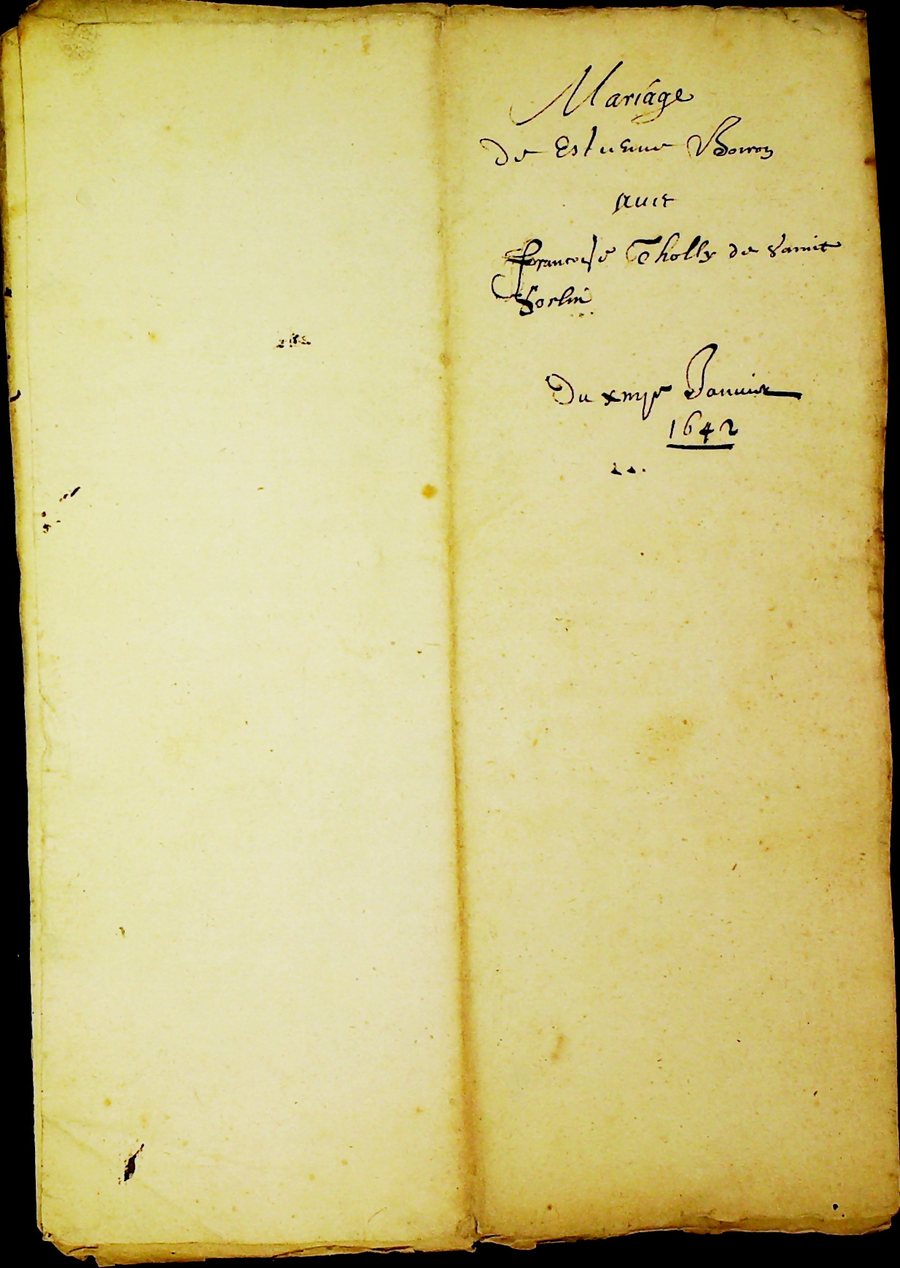 Mariage
de Estienne Boiron
auec
francoise Tholly de Sainct
Sorlin
Du xiiije Januier
1642